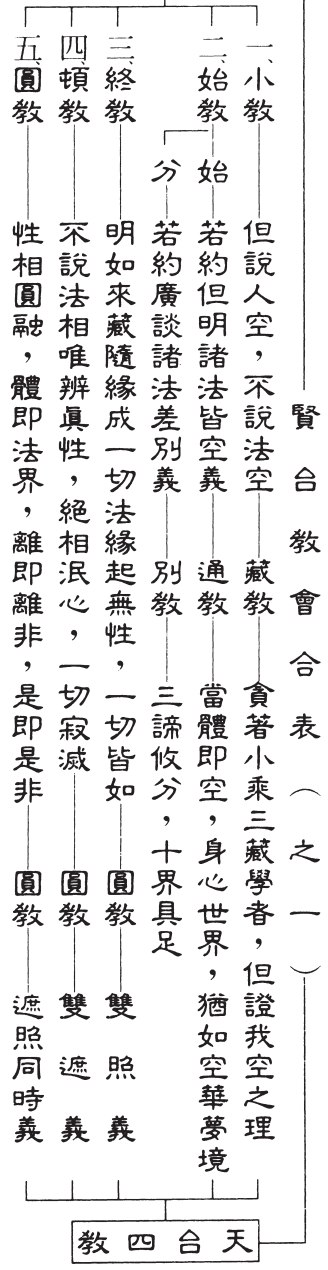 賢台教會合表（之一）
一、小教　但說人空，不說法空　藏教　貪著小乘三藏學者，但證我空之理
二、始教　始　若約但明諸法皆空義　通教　當體即空，身心世界，猶如空華夢境
分　若約廣談諸法差別義　別教　三諦攸分，十界具足
三、終教　明如來藏隨緣成一切法緣起無性，一切皆如　圓教　雙照義
四、頓教　不說法相唯辨眞性，絕相泯心，一切寂滅　圓教　雙遮義
五、圓教　性相圓融，體即法界，離即離非，是即是非　圓教　遮照同時義
天台四教